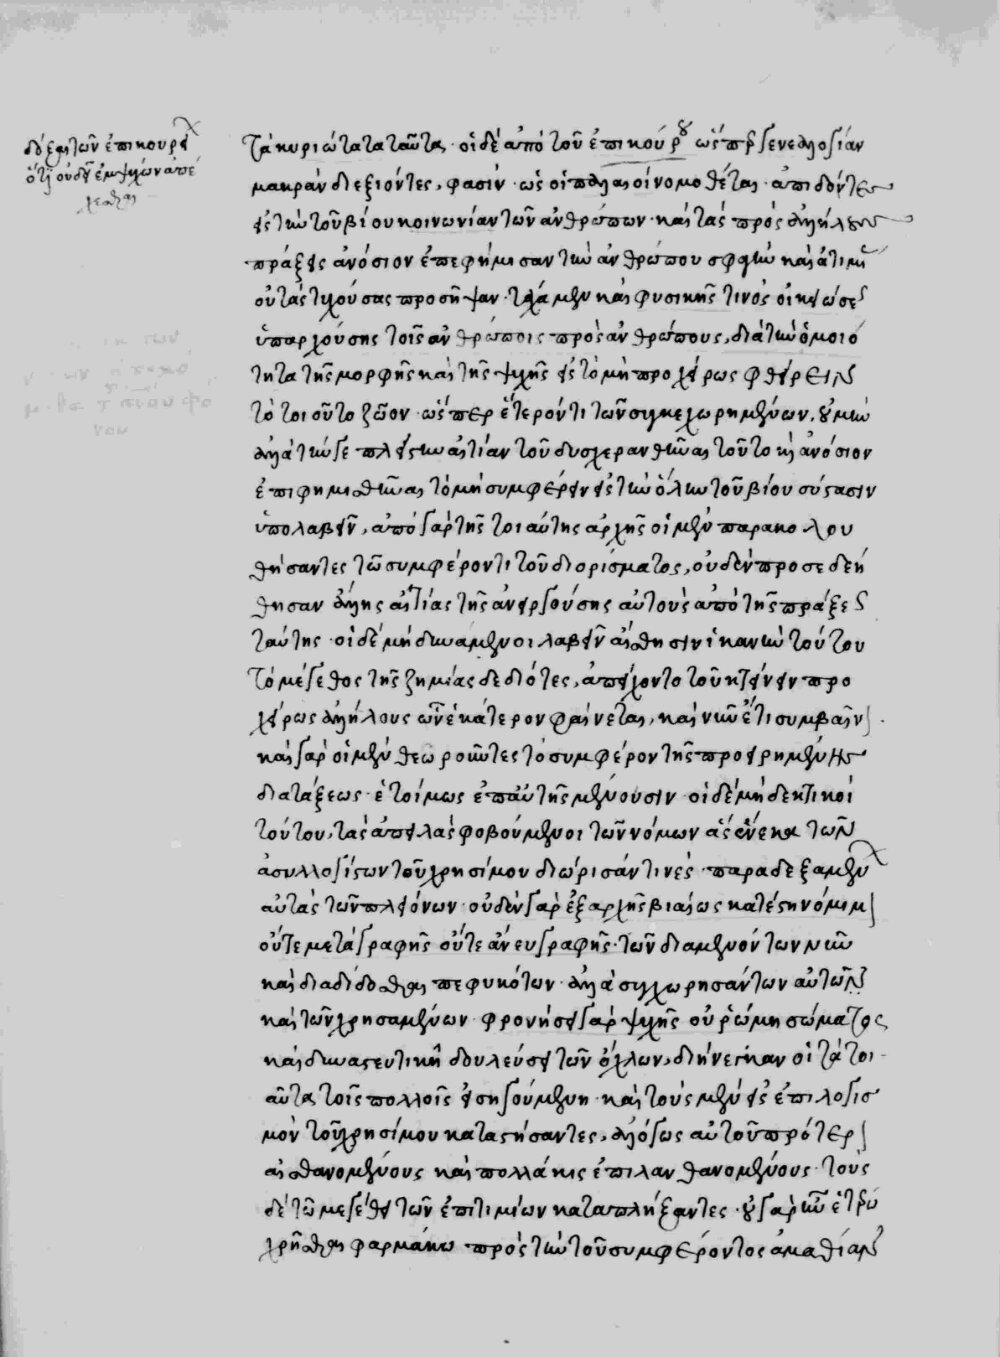 δόξαι τῶν ἐπικουρεί
ὅτι οὐδὲν ἐμψύχων ἀπέ
χεσθαι
τὰ κυριώτατα ταῦτα. οἱ δὲ ἀπὸ τοῦ ἐπικούρου ὥσπερ γενεαλογίαν
μακρὰν διεξιόντες, φασὶν ὡς οἱ παλαιοὶ νομοθέται ἀπιδόντες
εἰς τὴν τοῦ βίου κοινωνίαν τῶν ἀνθρώπων καὶ τὰς πρὸς ἀλλήλους
πράξεις ἀνόσιον ἐπεφήμισαν τὴν ἀνθρώπου σφαγὴν καὶ ἀτιμίας
οὐ τὰς τυχούσας προσῆψαν. τάχα μὲν καὶ φυσικῆς τινὸς οἰκειώσεως
ὑπαρχούσης τοῖς ἀνθρώποις πρὸς ἀνθρώπους, διὰ τὴν ὁμοιό
τητα τῆς μορφῆς καὶ τῆς ψυχῆς εἰς τὸ μὴ προχείρως φθείρειν
τὸ τοιοῦτο ζῶον ὥσπερ ἕτερόν τι τῶν συγκεχωρημένων. οὐ μὴν
ἀλλὰ τήν γε πλείστην αἰτίαν τοῦ δυσχερανθῆναι τοῦτο καὶ ἀνόσιον
ἐπιφημισθῆναι τὸ μὴ συμφέρειν εἰς τὴν ὅλην τοῦ βίου σύστασιν
ὑπολαβεῖν. ἀπὸ γὰρ τῆς τοιαύτης ἀρχῆς οἱ μὲν παρακολου
θήσαντες τῶ συμφέροντι τοῦ διορίσματος, οὐδὲν προσεδεή
θησαν ἄλλης αἰτίας τῆς ἀνειργούσης αὐτοὺς ἀπὸ τῆς πράξεως
ταύτης. οἱ δὲ μὴ δυνάμενοι λαβεῖν αἴσθησιν ἱκανὴν τούτου
τὸ μέγεθος τῆς ζημίας δεδιότες, ἀπείχοντο τοῦ κτείνειν προ
χείρως ἀλλήλους ὧν ἑκάτερον φαίνεται, καὶ νῦν ἔτι συμβαῖνον.
καὶ γὰρ οἱ μὲν θεωροῦντες τὸ συμφέρον τῆς προειρημένης
διατάξεως ἑτοίμως ἐπ' αὐτῆς μένουσιν. οἱ δὲ μὴ δεκτικοὶ
τούτου, τὰς ἀπειλὰς φοβούμενοι τῶν νόμων ἃς ἕνεκα τῶν
ἀσυλλογίστων τοῦ χρησίμου διώρισάν τινες παραδεξαμένων
αὐτὰς τῶν πλειόνων. οὐδὲν γὰρ ἐξ ἀρχῆς βιαίως κατέστη νόμιμον
οὔτε μετὰ γραφῆς οὔτε ἄνευ γραφῆς τῶν διαμενόντων νῦν
καὶ διαδίδοσθαι πεφυκότων ἀλλὰ συγχωρησάντων αὐτῶν
καὶ τῶν χρησαμένων. φρονήσει γὰρ ψυχῆς οὐ ῥώμη σώματος
καὶ δυναστευτικῆ δουλεύσει τῶν ὄχλων, διήνεγκαν οἱ τὰ τοι
αῦτα τοῖς πολλοῖς εἰσηγούμενοι. καὶ τοὺς μὲν εἰς ἐπιλογισ
μὸν τοῦ χρησίμου καταστήσαντες, ἀλόγως αὐτοῦ πρότερον
αἰσθανομένους καὶ πολλάκις ἐπιλανθανομένους. τοὺς
δὲ τῶ μεγέθει τῶν ἐπιτιμίων καταπλήξαντες. οὐ γὰρ ἦν ἑτέρω
χρῆσθαι φαρμάκω πρὸς τὴν τοῦ συμφέροντος ἀμαθίαν